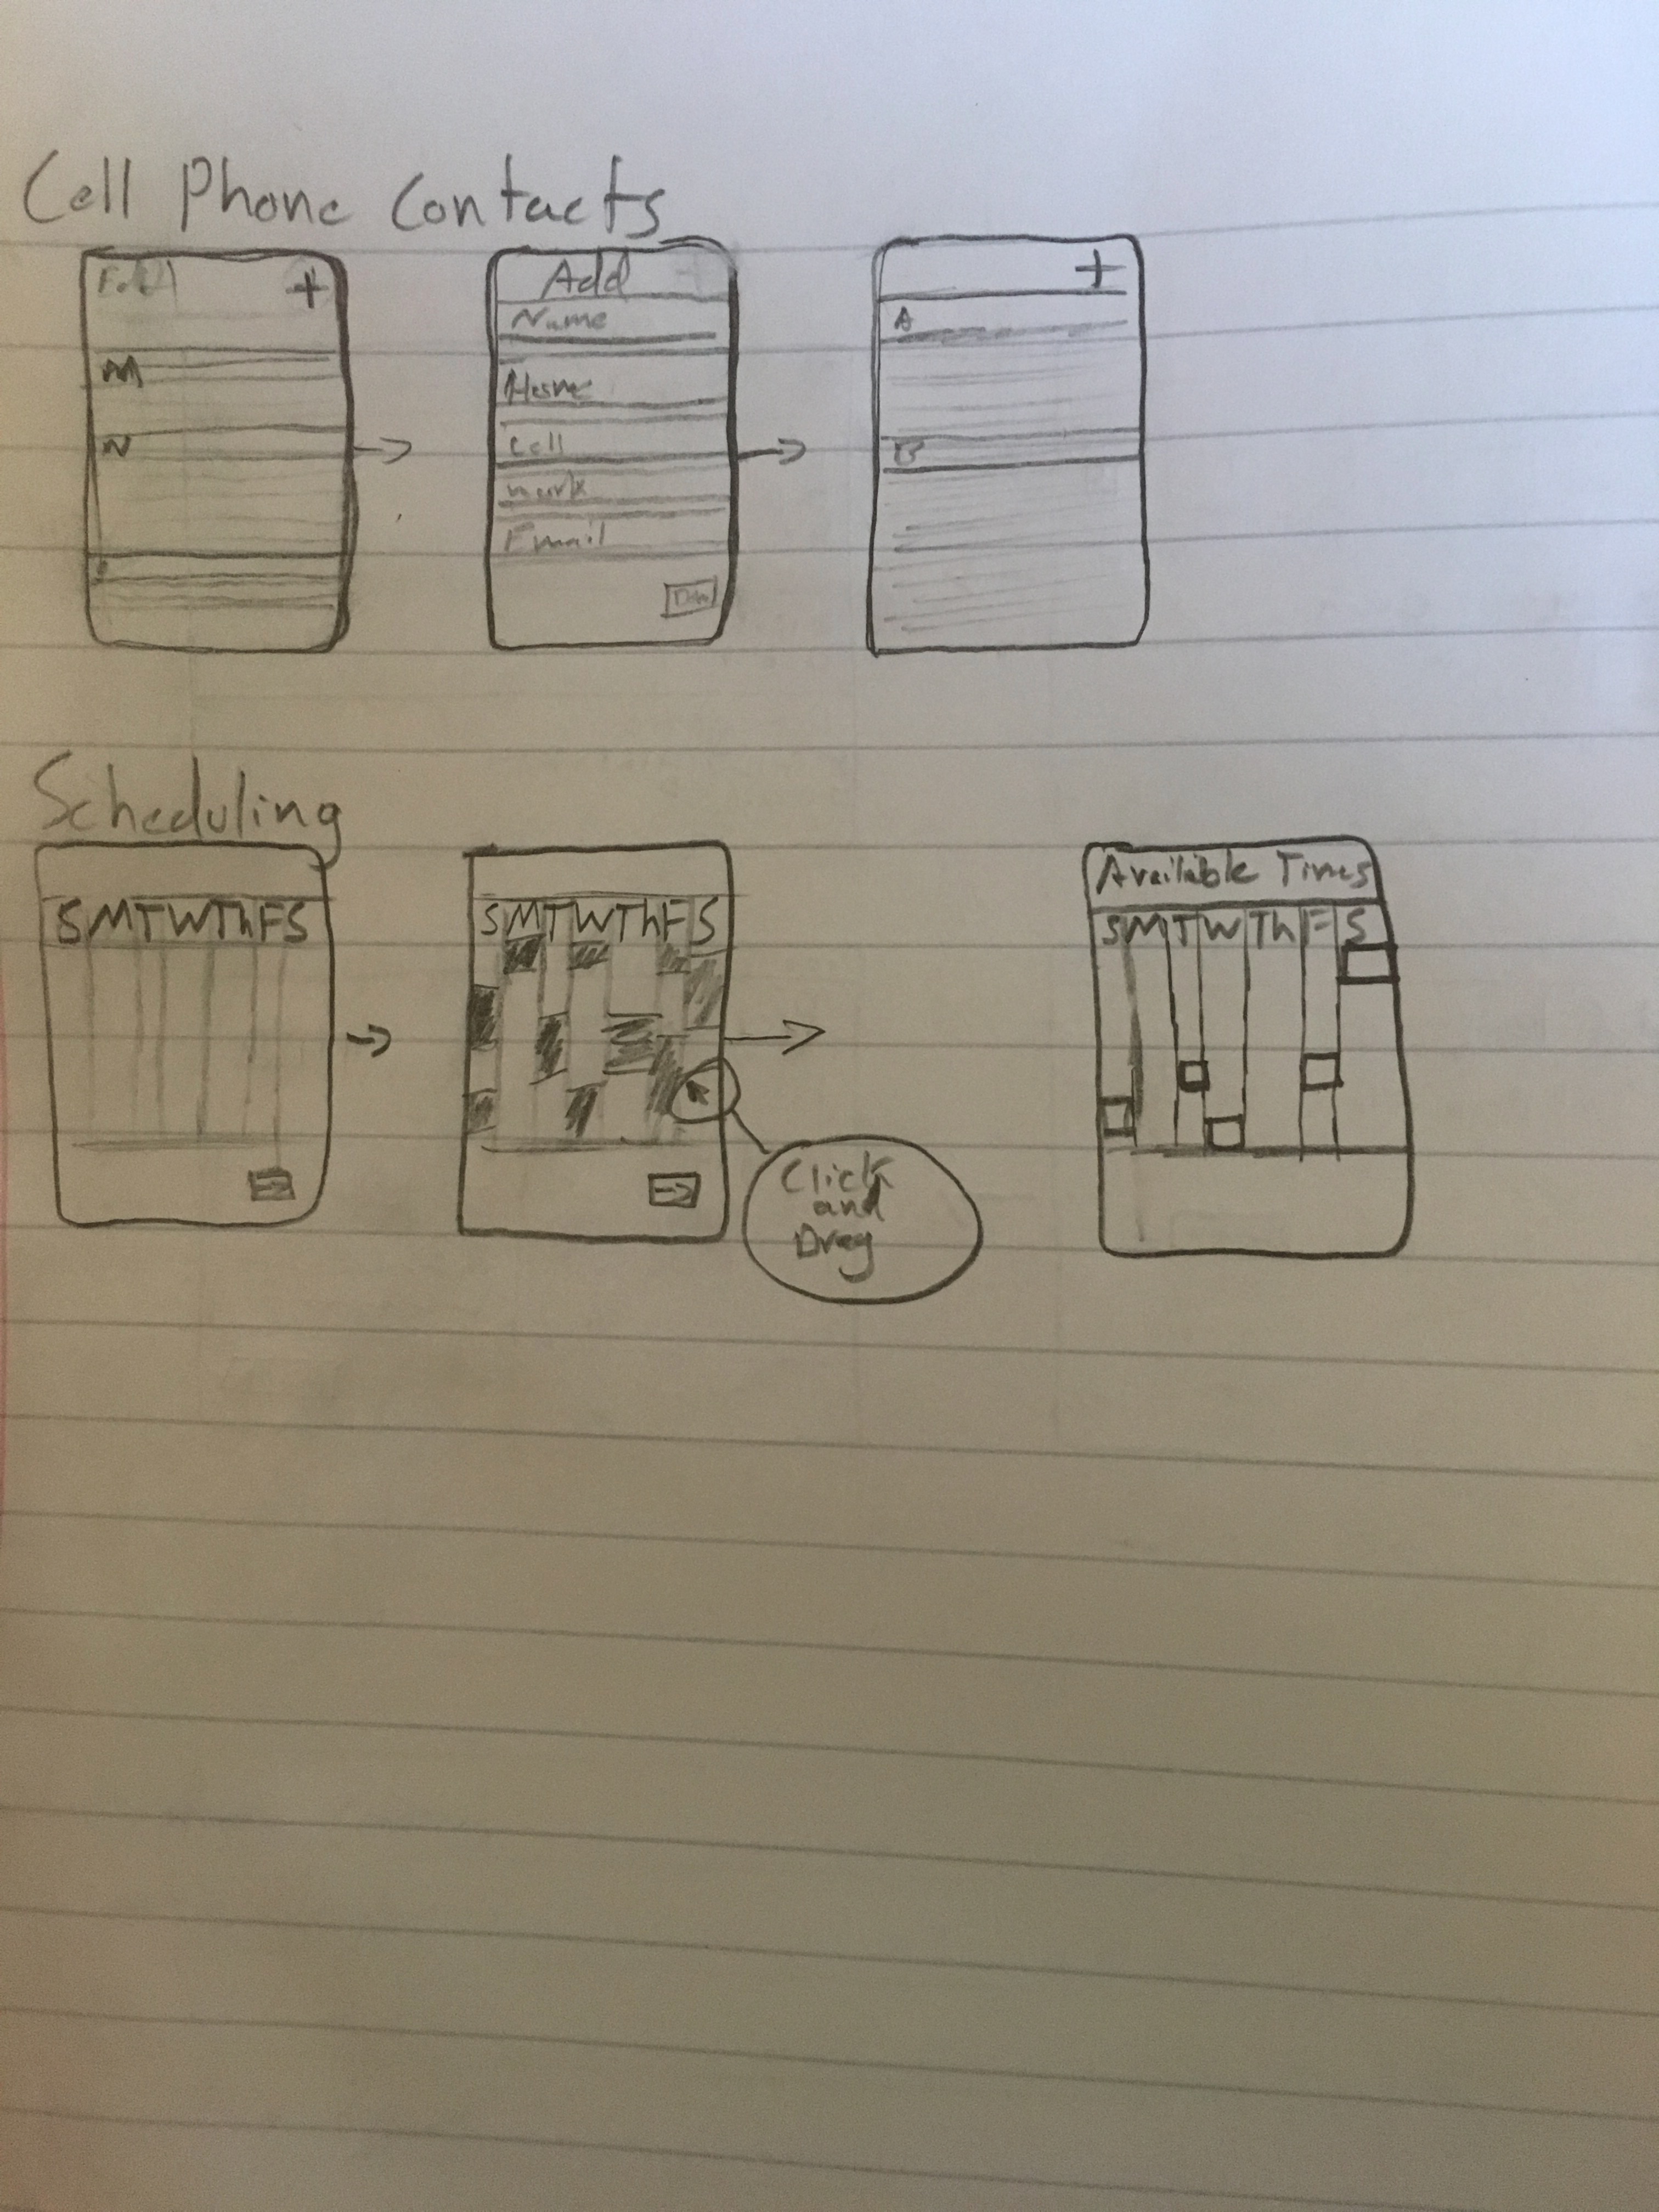 Cell Phone Contacts
+
M
N
Add
Name
Home
Cell
work
Email
+
A
B
Scheduling
S M T W Th F S
S M T W Th F S
Click
and
Drag
Available Times
S M T W Th F S